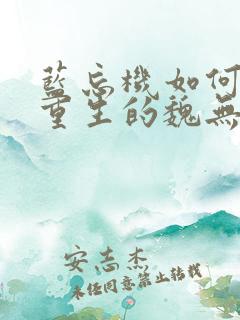 藍忘機如何
重生的魏無
安志杰
未經同意禁止轉載